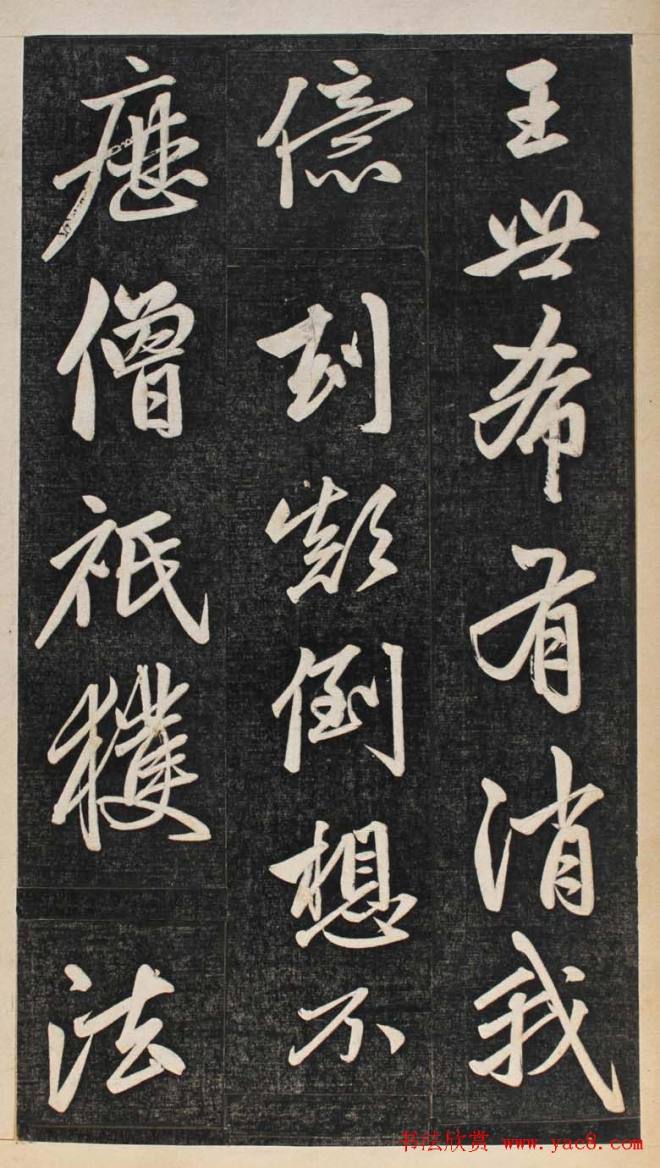 王世希有消我
億刦顛倒想不
歷僧祇穫法
书法欣赏 www.yac8.com